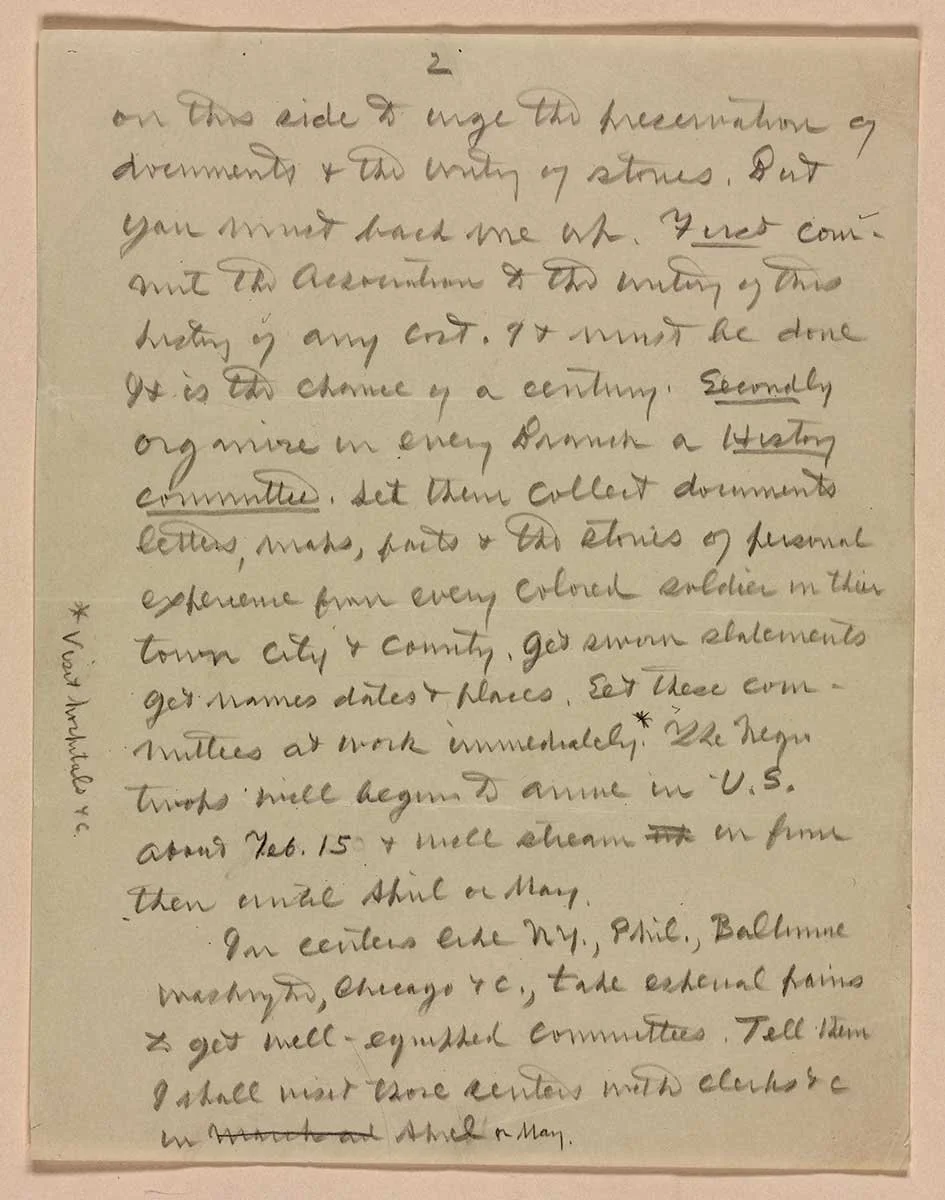 2
on this side to urge the preservation of
documents & the writing of stories. But
you must back me up. First com-
mit the Association to the writing of this
history of any cost. It must be done
It is the chance of a century. Secondly
organize in every Branch a History
committee. Let them collect documents
letters, maps, facts & the stories of personal
experience from every colored soldier in their
town city & county. Get sworn statements
get names dates & places. Set these com-
mittees at work immediately.* The Negro
troops will begin to arrive in U.S.
about Feb. 15 & will stream in from
then until April or May.
In centers like N.Y., Phil., Baltimore
Washington, Chicago &c., take especial pains
to get well-equipped committees. Tell them
I shall visit those centers with clerks &c
in March and April or May.
* Visit hospitals &c.